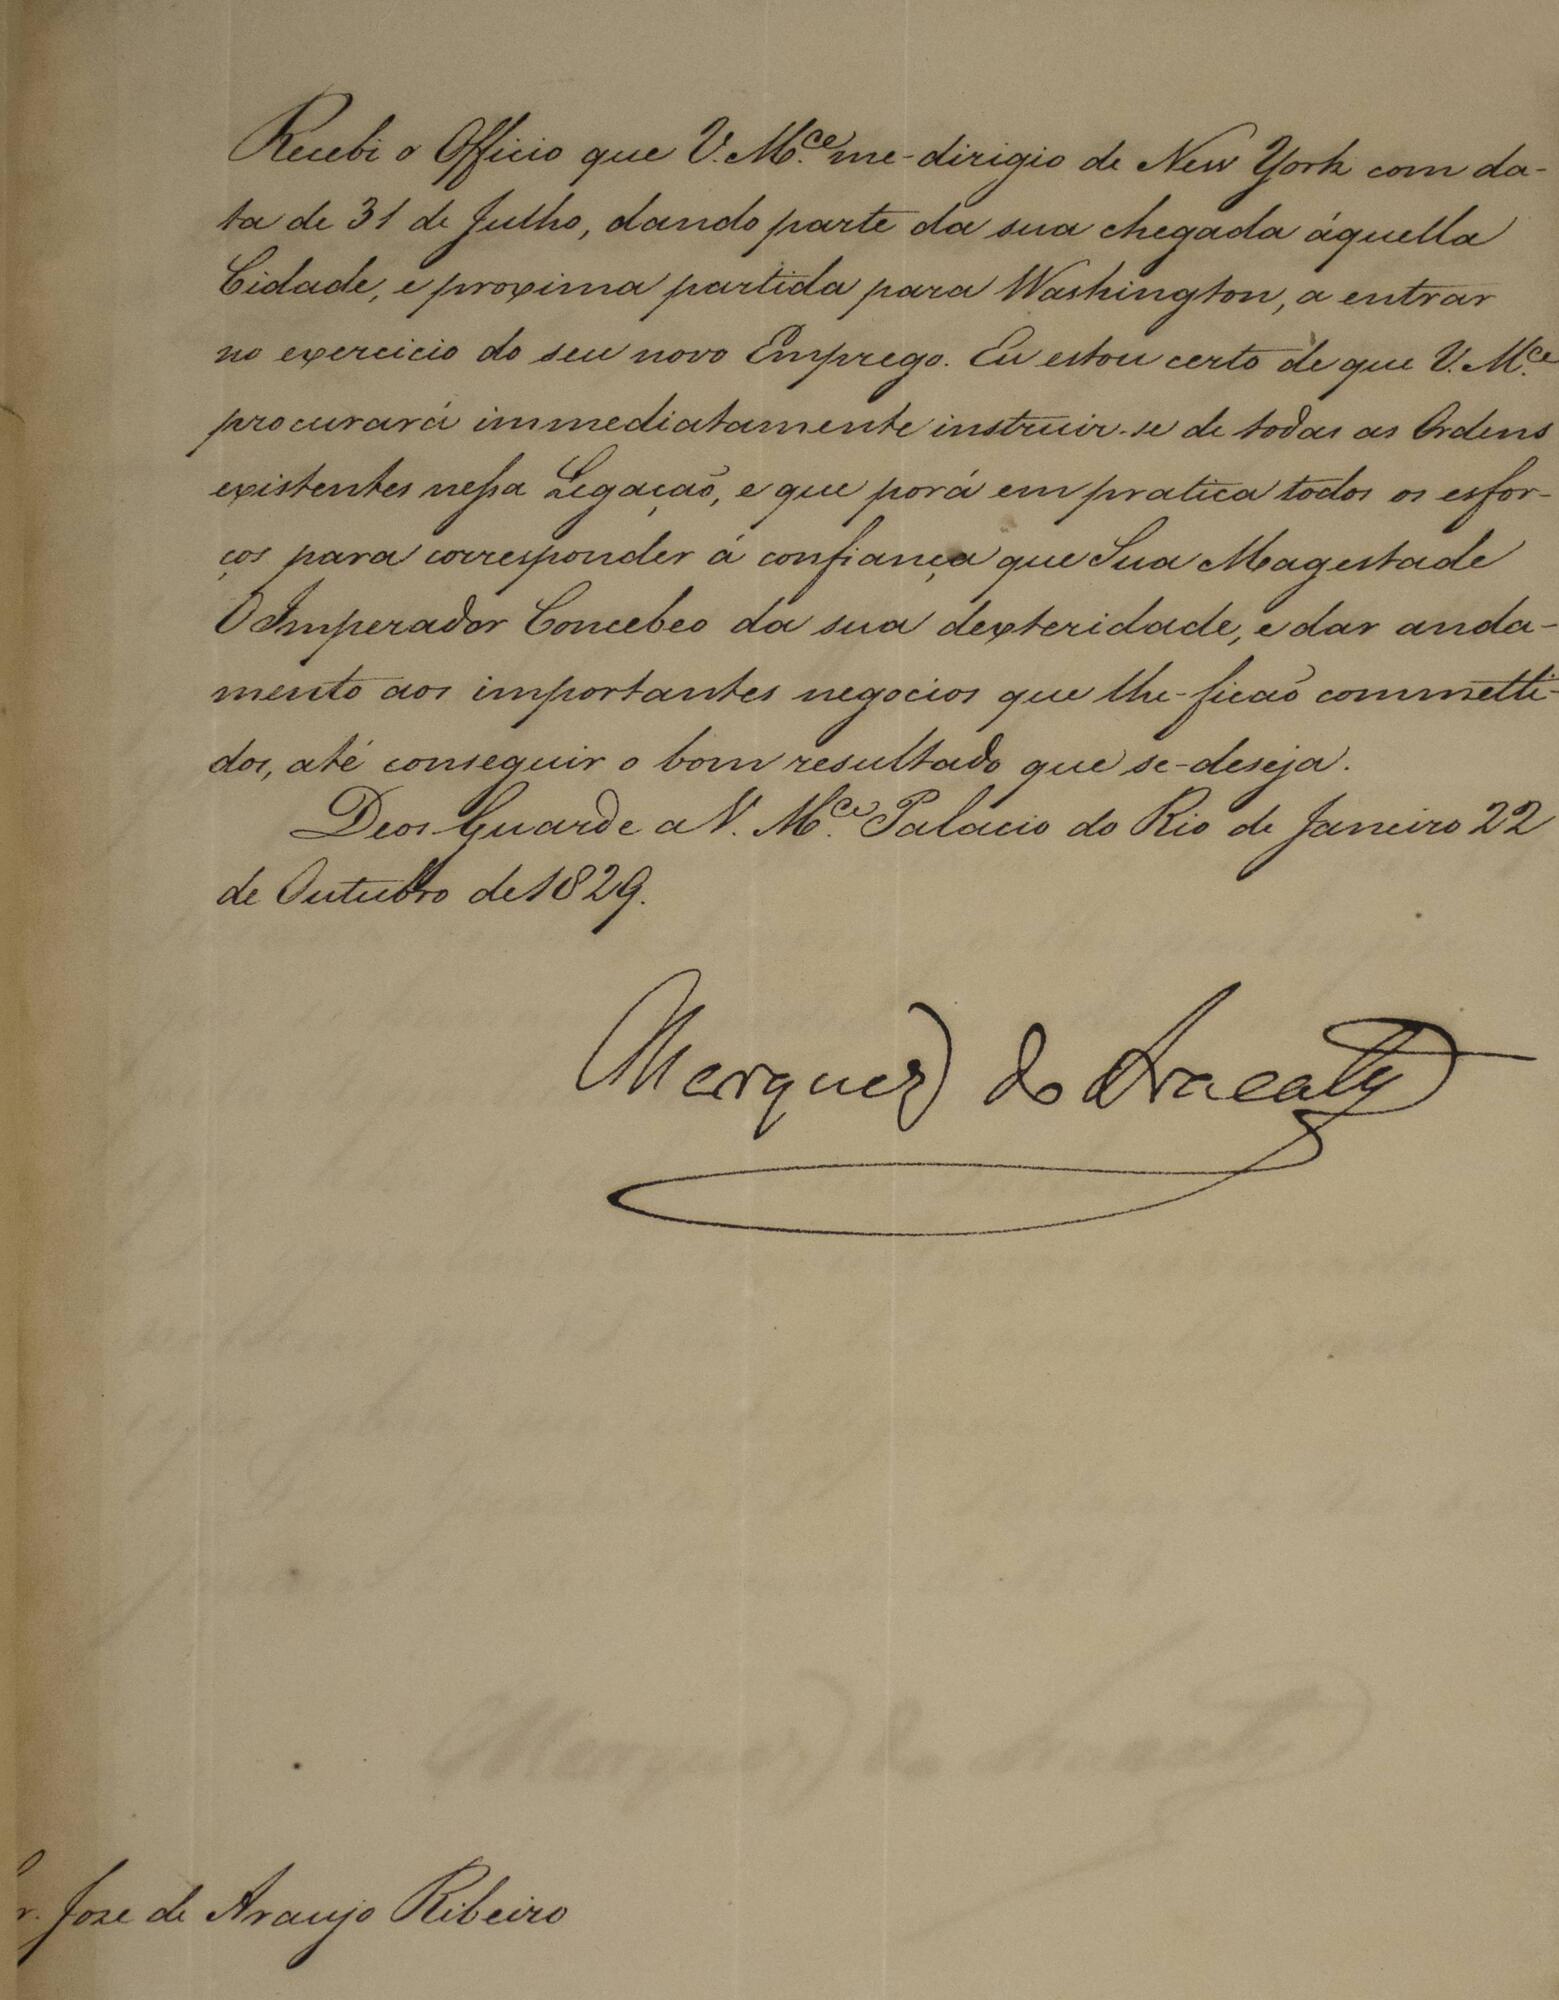 Recebi o Officio que V. M.ce me-dirigio de New York com da-
ta de 31 de Julho, dando parte da sua chegada áquella
Cidade, e proxima partida para Washington, a entrar
no exercicio do seu novo Emprego. Eu estou certo de que V. M.ce
procurará immediatamente instruir-se de todas as Ordens
existentes nessa Legação, e que porá em pratica todos os esfor-
ços para corresponder á confiança que Sua Magestade
O Imperador Concebeo da sua dexteridade, e dar anda-
mento aos importantes negocios que lhe-ficão commetti-
dos, até conseguir o bom resultado que se-deseja.
Deos Guarde a V. M.ce Palacio do Rio de Janeiro 22
de Outubro de 1829.
Marquez do Aracaty
r. Joze de Araujo Ribeiro